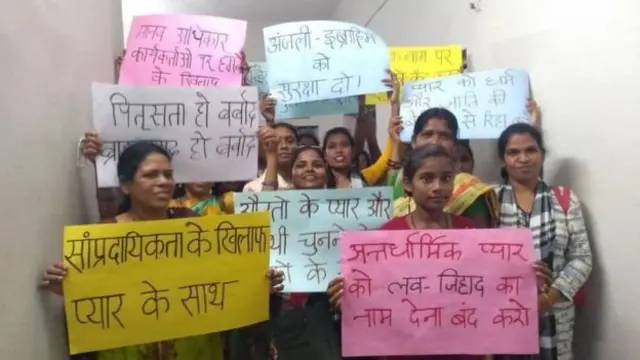 मानव अधिकार
कार्यकर्ताओं पर हमले
के खिलाफ
अंजली-इब्राहिम
को
सुरक्षा दो!
नाम पर
प्यार को धर्म
और जाति की
से रिहा
पितृसत्ता हो बर्बाद
हो बर्बाद
औरतो के प्यार और
चुनने
के
सांप्रदायिकता के खिलाफ
प्यार के साथ
अन्तर्धार्मिक प्यार
को लव-जिहाद का
नाम देना बंद करो